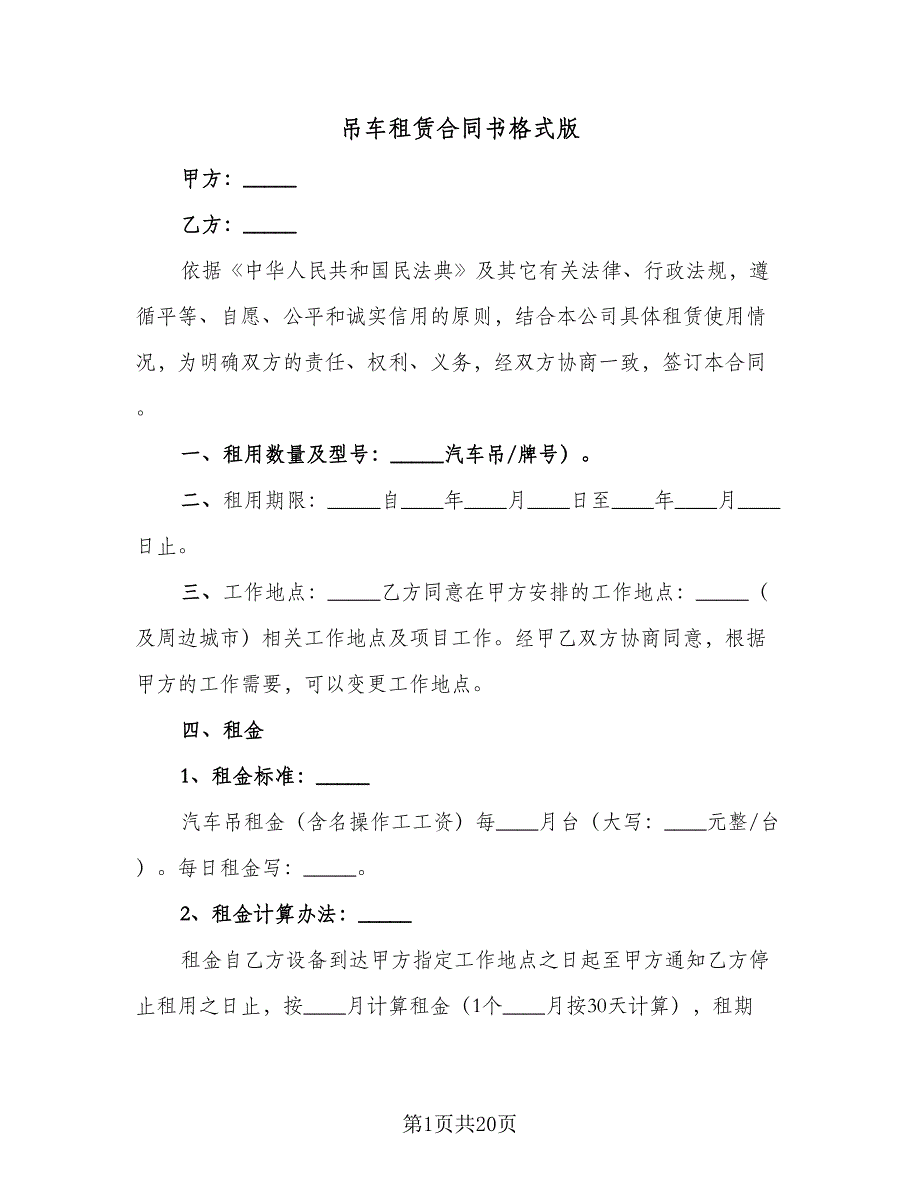 吊车租赁合同书格式版
甲方：_____
乙方：_____
依据《中华人民共和国民法典》及其它有关法律、行政法规，遵
循平等、自愿、公平和诚实信用的原则，结合本公司具体租赁使用情
况，为明确双方的责任、权利、义务，经双方协商一致，签订本合同
。
一、租用数量及型号：_____汽车吊/牌号）。
二、租用期限：_____自____年____月____日至____年____月____
日止。
三、工作地点：_____乙方同意在甲方安排的工作地点：_____（
及周边城市）相关工作地点及项目工作。经甲乙双方协商同意，根据
甲方的工作需要，可以变更工作地点。
四、租金
1、租金标准：_____
汽车吊租金（含名操作工工资）每____月台（大写：____元整/台
）。每日租金写：_____。
2、租金计算办法：_____
租金自乙方设备到达甲方指定工作地点之日起至甲方通知乙方停
止租用之日止，按____月计算租金（1个____月按30天计算），租期
第1页共20页